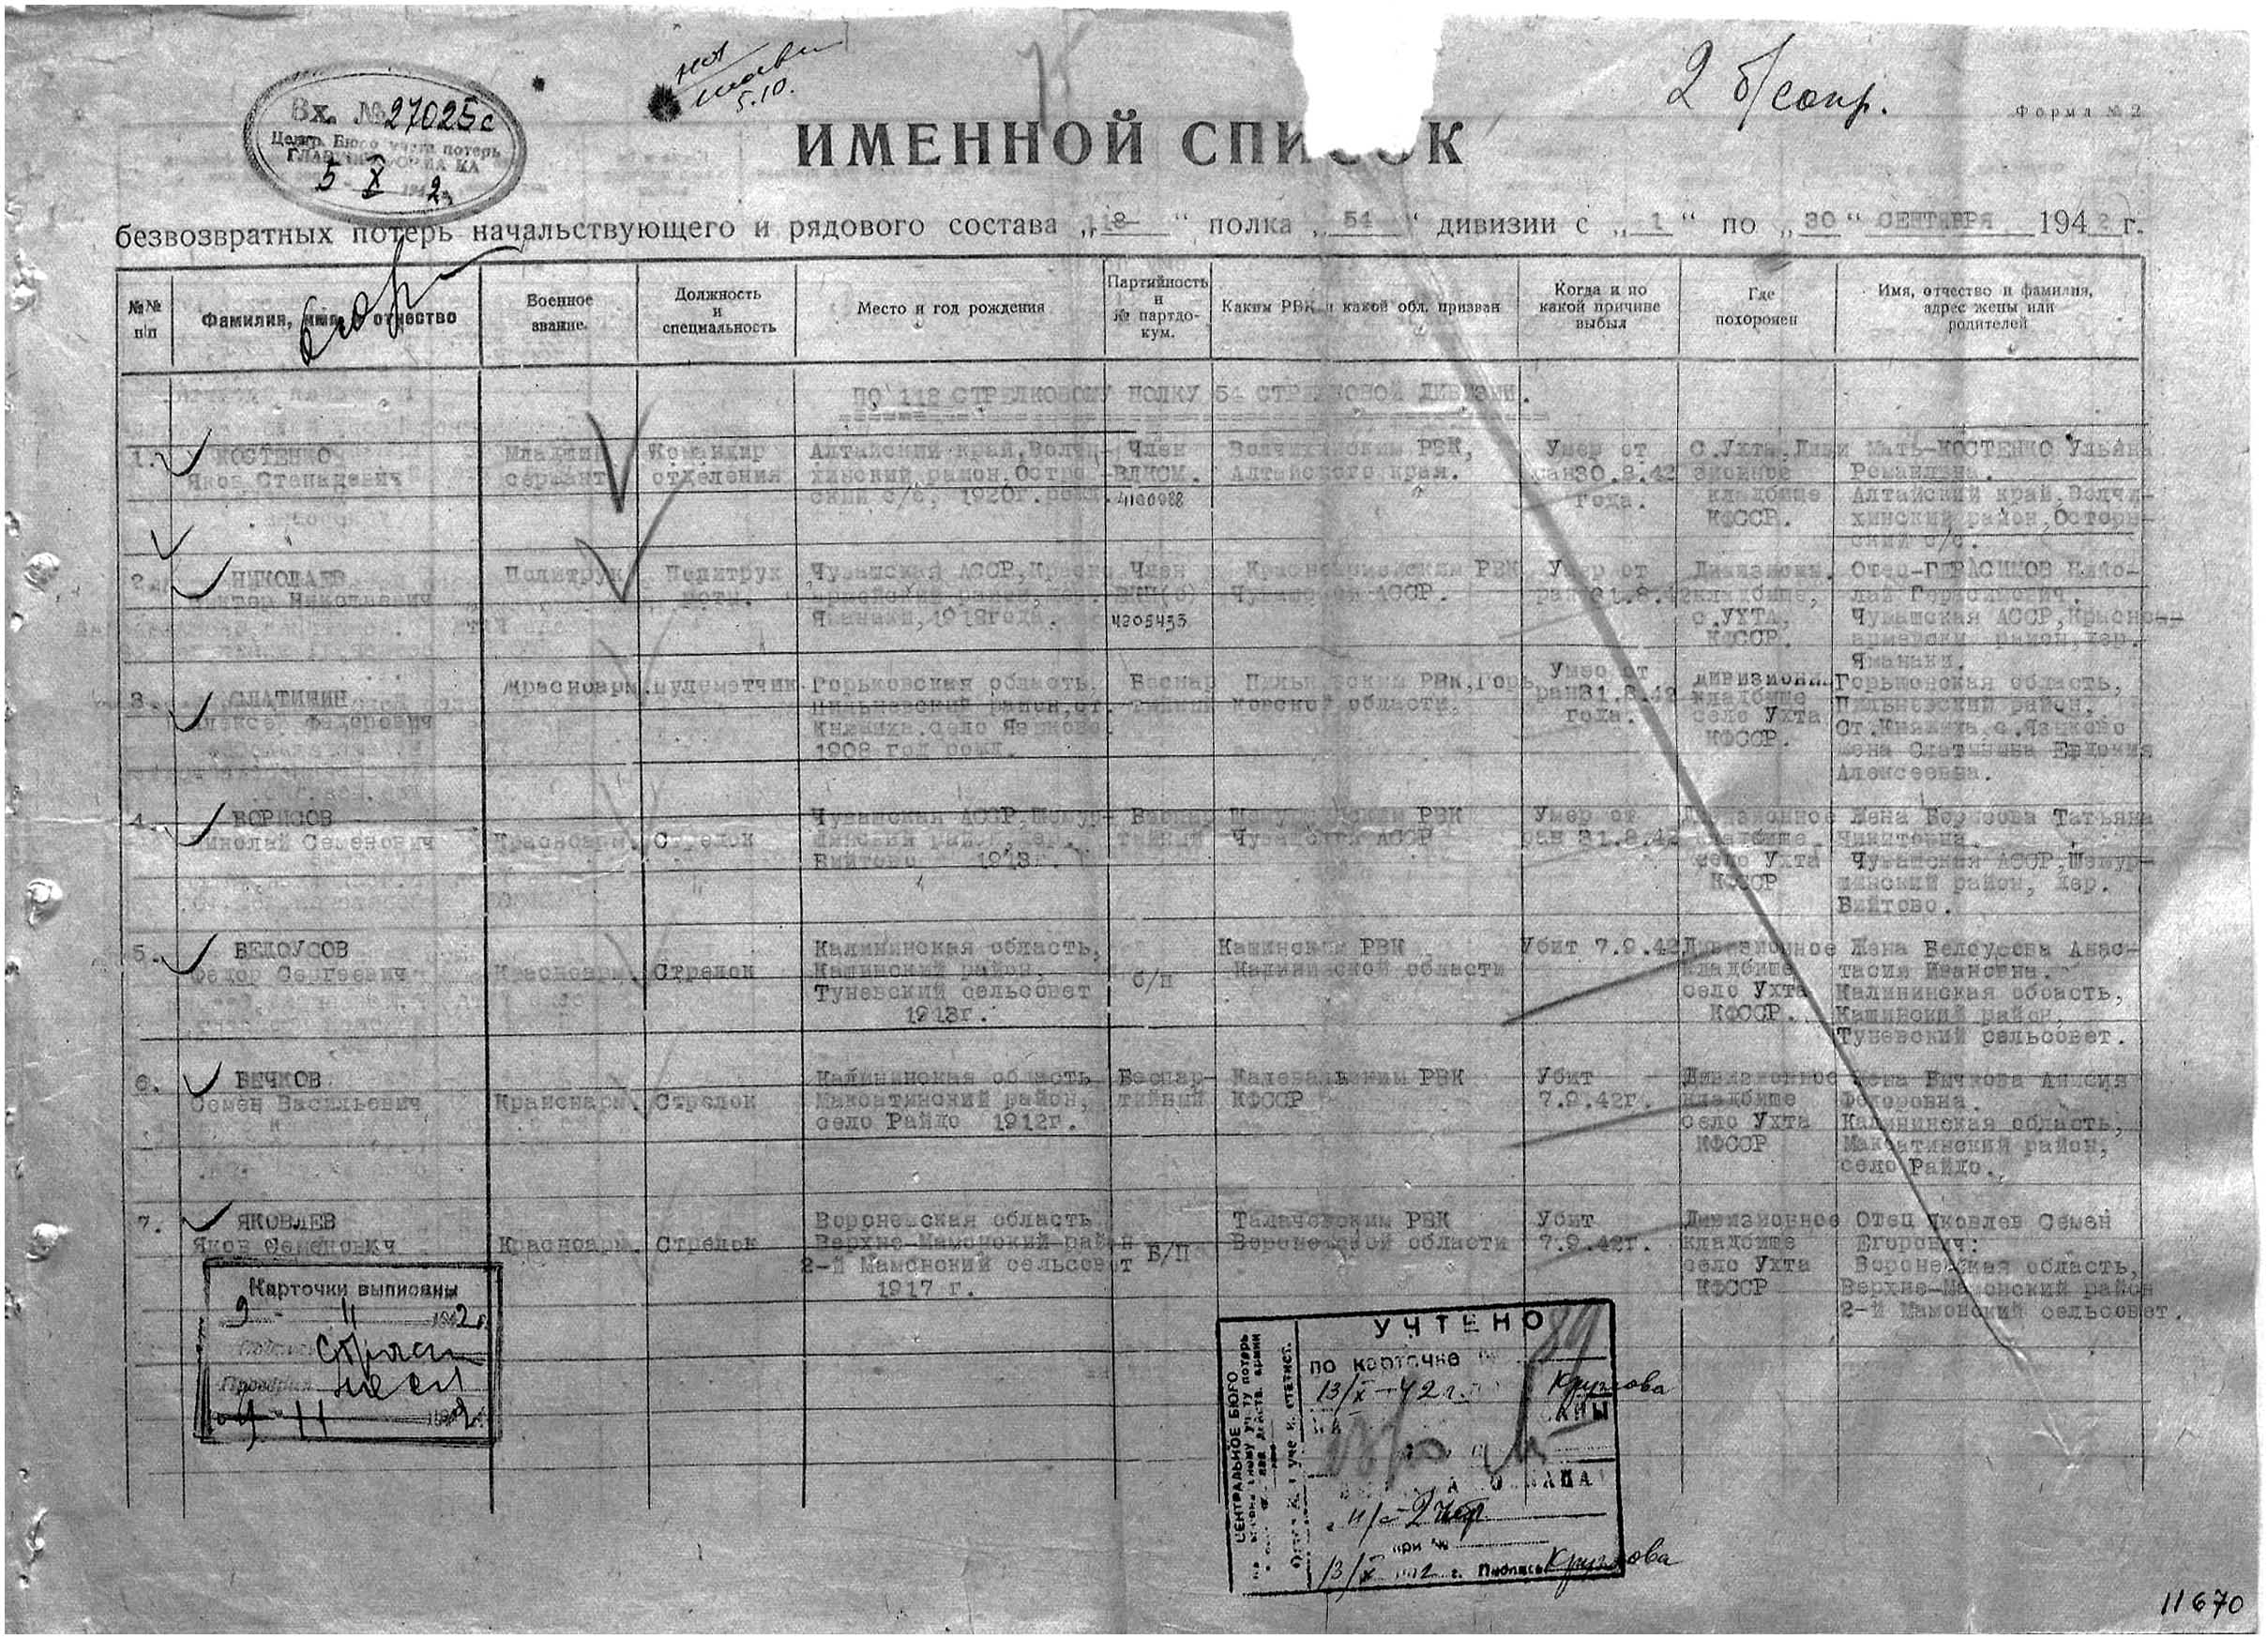 Вх. № 27025с
Центр. Бюро учета потерь
5 X 1942
5.10.
2 б/сопр.
Форма № 2
ИМЕННОЙ СПИСОК
безвозвратных потерь начальствующего и рядового состава „118“ полка „54“ дивизии с „1“ по „30“ СЕНТЯБРЯ 1942 г.
№№ п/п
Фамилия, имя и отчество
Военное звание.
Должность и специальность
Место и год рождения
Партийность и № партдокум.
Каким РВК и какой обл. призван
Когда и по какой причине выбыл
Где похоронен
Имя, отчество и фамилия, адрес жены или родителей
ПО 118 СТРЕЛКОВОМУ ПОЛКУ 54 СТРЕЛКОВОЙ ДИВИЗИИ.
1. КОСТЕНКО Младший Командир Алтайский край, Волчи- Член Волчихинским РВК, Умер от С.Ухта, Диви Мать-КОСТЕНКО Ульяна
Яков Степанович сержант отделения хинский район, Остро ВЛКСМ. Алтайского края. ран 30.8.42 зионное Романовна.
ский с/с, 1920г. рожд. 4100988 года. кладбище Алтайский край, Волчи-
КФССР. хинский район,
ский с/с.
2. НИКОЛАЕВ Политрук Политрук Чувашская АССР, Красно Член Красноармейским РВК Умер от Дивизионн. Отец-ГЕРАСИМОВ Нико-
Виктор Николаевич роты. армейский район, ВКП(б) Чувашской АССР. ран 31.8.42 кладбище, лай Герасимович.
Яманаки, 1918года. 4205433 с.УХТА, Чувашская АССР, Красно-
КФССР. армейски район, дер.
Яманаки.
3. СЛАТИНИН Красноарм. Пулеметчик Горьковская область, Беспар Пильненским РВК, Горь Умер от дивизионн Горьковская область,
Алексей Федорович Пильненский район, ст. тийный ковской области. ран 31.8.42 кладбище Пильненский район,
Княжиха, село Языково. года. село Ухта Ст.Княжиха, с.Языково
1908 год рожд. КФССР. жена Слатинина Евдокия
Алексеевна.
4. БОРИСОВ Чувашская АССР, Шемур- Беспар Шемуршинским РВК Умер от Дивизионное Жена Борисова Татьяна
Николай Семенович Красноарм. Стрелок шинский район, дер. тийный Чувашской АССР ран 31.8.42 кладбище Никитовна.
Бийтово 1913г. село Ухта Чувашская АССР, Шемур-
КФССР шинский район, дер.
Бийтово.
5. БЕЛОУСОВ Калининская область, Кашинским РВК Убит 7.9.42 Дивизионное Жена Белоусова Анас-
Федор Сергеевич Красноарм. Стрелок Кашинский район, б/п Калининской области кладбище тасия Ивановна.
Туневский сельсовет село Ухта Калининская область,
1913г. КФССР. Кашинский район,
Туневский сельсовет.
6. БЫЧКОВ Калининская область Беспар- Калевальским РВК Убит Дивизионное Жена Бычкова Анисия
Семен Васильевич Краснарм. Стрелок Максатинский район, тийный КФССР 7.9.42г. кладбище Федоровна.
село Райдо 1912г. село Ухта Калининская область,
КФССР Максатинский район,
село Райдо.
7. ЯКОВЛЕВ Воронежская область Талачевским РВК Убит Дивизионное Отец Яковлев Семен
Яков Семенович Красноарм. Стрелок Верхне-Мамонский район Б/П Воронежской области 7.9.42г. кладбище Егорович:
2-й Мамонский сельсовет село Ухта Воронежская область,
1917 г. КФССР Верхне-Мамонский район
2-й Мамонский сельсовет.
Карточки выписаны
9 - 11 1942г.
Проверил
9 11 1942
УЧТЕНО
89
по карточке
13/X-42 г. Круглова
ЦЕНТРАЛЬНОЕ БЮРО
при №
13/X 1942 г. Подпись Круглова
11670